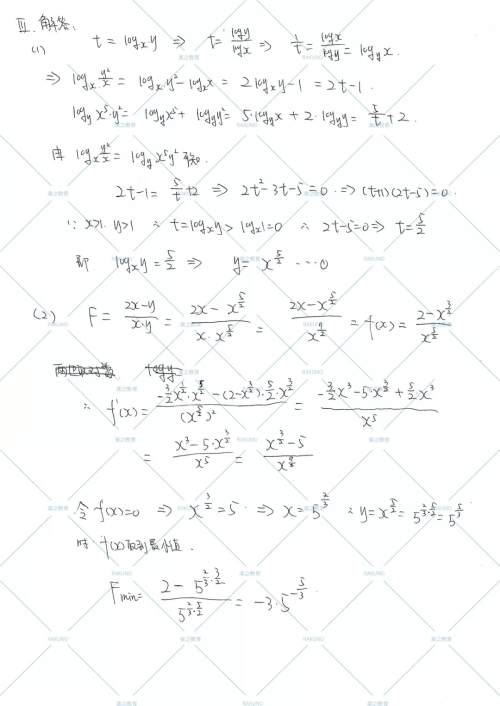 III. 解答:
(1) t = log_x y ⇒ t = logy/logx ⇒ 1/t = logx/logy = log_y x.
⇒ log_x y²/x = log_x y² - log_x x = 2log_x y - 1 = 2t-1.
log_y x⁵·y² = log_y x⁵ + log_y y² = 5·log_y x + 2·log_y y = 5/t + 2.
由 log_x y²/x = log_y x⁵y² 知.
2t-1 = 5/t + 2 ⇒ 2t²-3t-5=0. ⇒ (t+1)(2t-5)=0.
∵ x>1. y>1 ∴ t=log_x y > log_x 1=0 ∴ 2t-5=0 ⇒ t=5/2
即 log_x y = 5/2 ⇒ y = x^(5/2) ···①
(2) F = (2x-y)/(x·y) = (2x - x^(5/2))/(x·x^(5/2)) = (2x-x^(5/2))/x^(7/2) = f(x) = (2-x^(3/2))/x^(5/2)
∴ f'(x) = (-3/2 x^(1/2)·x^(5/2) - (2-x^(3/2))·5/2·x^(3/2))/(x^(5/2))² = (-3/2 x³ - 5·x^(3/2) + 5/2·x³)/x⁵
= (x³-5·x^(3/2))/x⁵ = (x^(3/2)-5)/x^(7/2)
令 f'(x)=0 ⇒ x^(3/2)=5 ⇒ x=5^(2/3) ∴ y=x^(5/2)=5^(2/3·5/2)=5^(5/3)
时 f(x)取到最小值.
Fmin = (2-5^(2/3·3/2))/5^(2/3·5/2) = -3·5^(-5/3)
楽之教育
RAKUNO